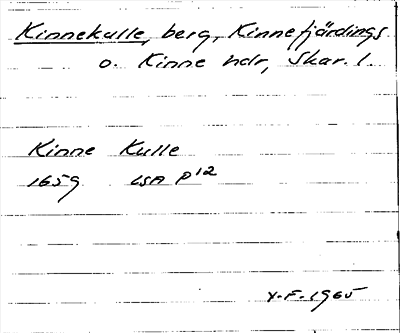 Kinnekulle, berg, Kinnefjärdings
o. Kinne hdr, Skar. l.
Kinne Kulle
1659 LSA P12
Y.F. 1965